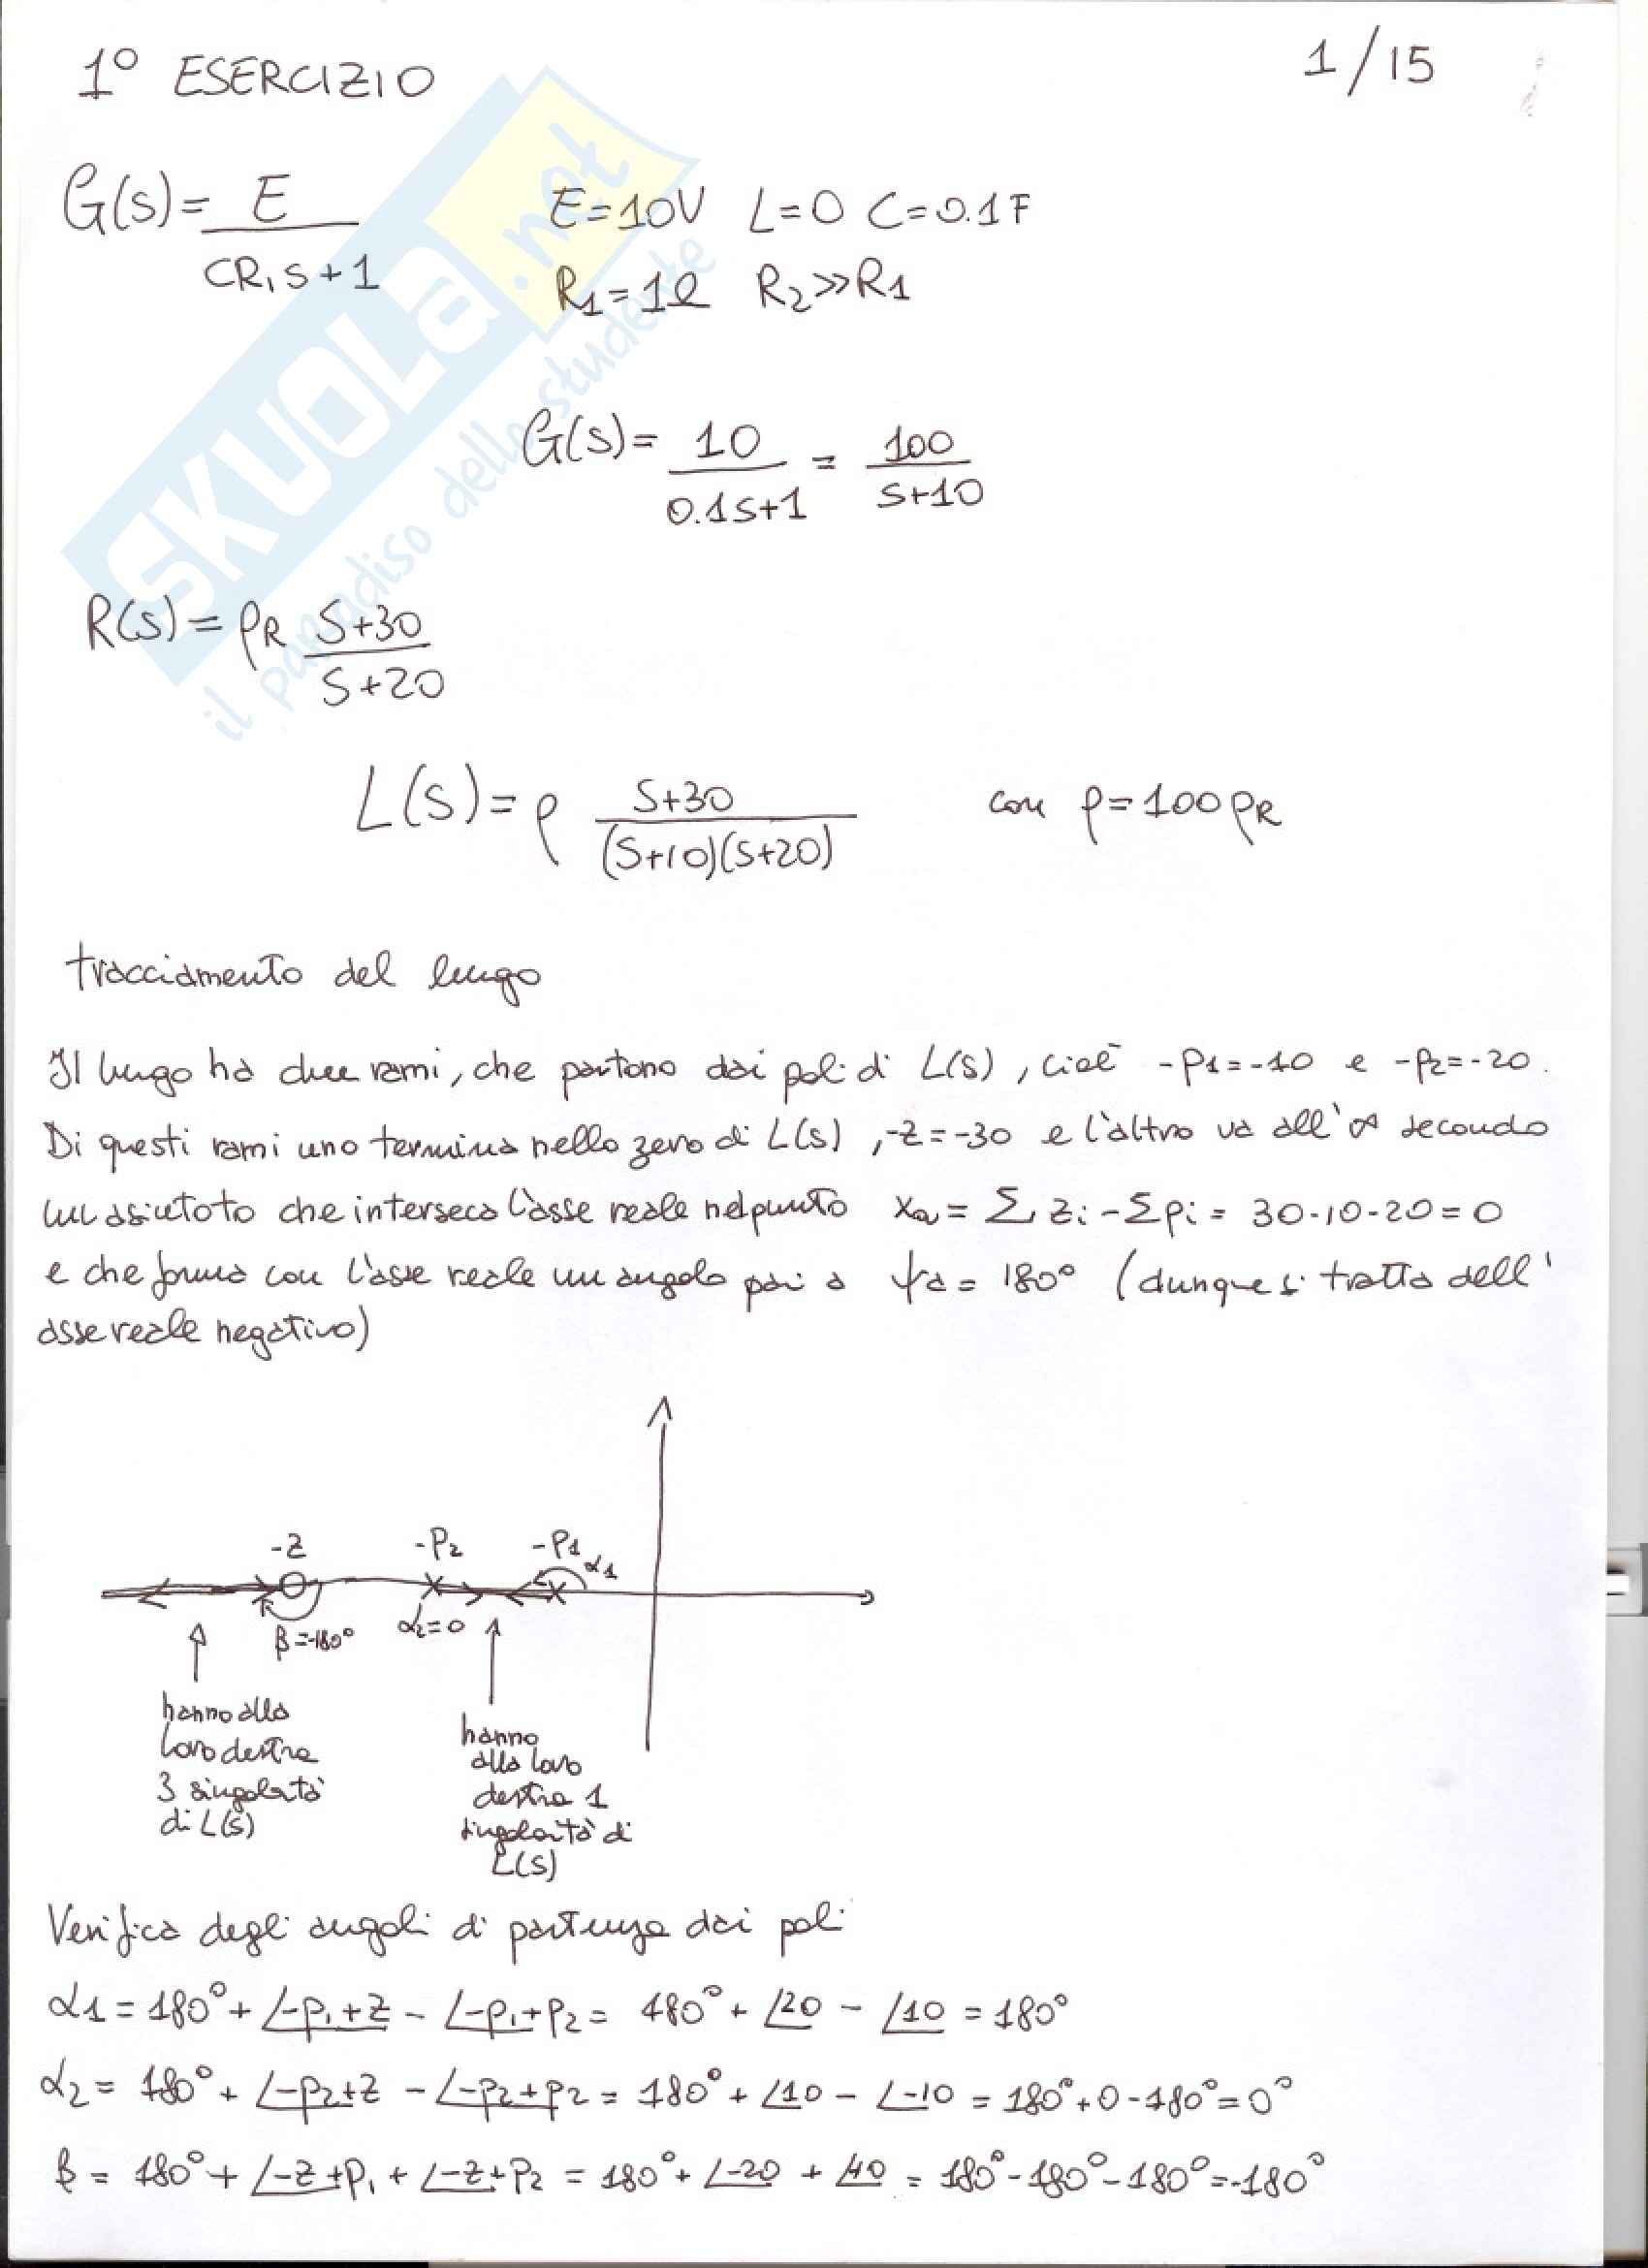 1° ESERCIZIO 1/15
G(s)= E / CR1s+1 E=10V L=0 C=0.1F
R1=1Ω R2≫R1
G(s)= 10 / 0.1s+1 = 100 / s+10
R(s)=ρR s+30 / s+20
L(s)=ρ s+30 / (s+10)(s+20) con ρ=100ρR
tracciamento del luogo
Il luogo ha due rami, che partono dai poli di L(s), cioè -p1=-10 e -p2=-20.
Di questi rami uno termina nello zero di L(s), -z=-30 e l'altro va all'∞ secondo
un asintoto che interseca l'asse reale nel punto xa = Σ zi - Σ pi = 30-10-20=0
e che forma con l'asse reale un angolo pari a ψa = 180° (dunque si tratta dell'
asse reale negativo)
-z -p2 -p1 α1
β=-180° α2=0
hanno alla
loro destra
3 singolarità
di L(s)
hanno
alla loro
destra 1
singolarità di
L(s)
Verifica degli angoli di partenza dai poli
α1 = 180° + ∠-p1+z - ∠-p1+p2 = 180° + ∠20 - ∠10 = 180°
α2 = 180° + ∠-p2+z - ∠-p2+p2 = 180° + ∠10 - ∠-10 = 180°+0-180°=0°
β = 180° + ∠-z+p1 + ∠-z+p2 = 180° + ∠-20 + ∠10 = 180°-180°-180°=-180°
SKUOLA.net
il paradiso dello studente